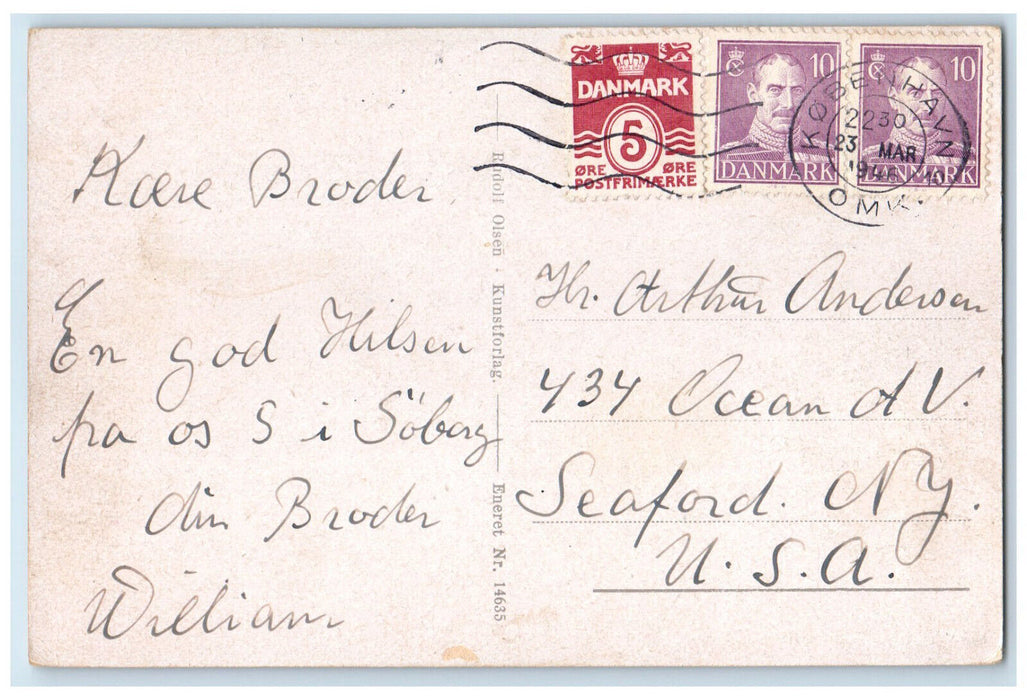 Kære Broder
En god Hilsen
fra os 5 i Söborg
din Broder
William
Rudolf Olsen · Kunstforlag.
Eneret Nr. 14635
DANMARK
5
ØRE ØRE
POSTFRIMÆRKE
10
DANMARK
10
DANMARK
KØBENHAVN
2230
23 MAR
1946
OMK.
Hr. Arthur Andersen
434 Ocean AV.
Seaford. NY.
U.S.A.